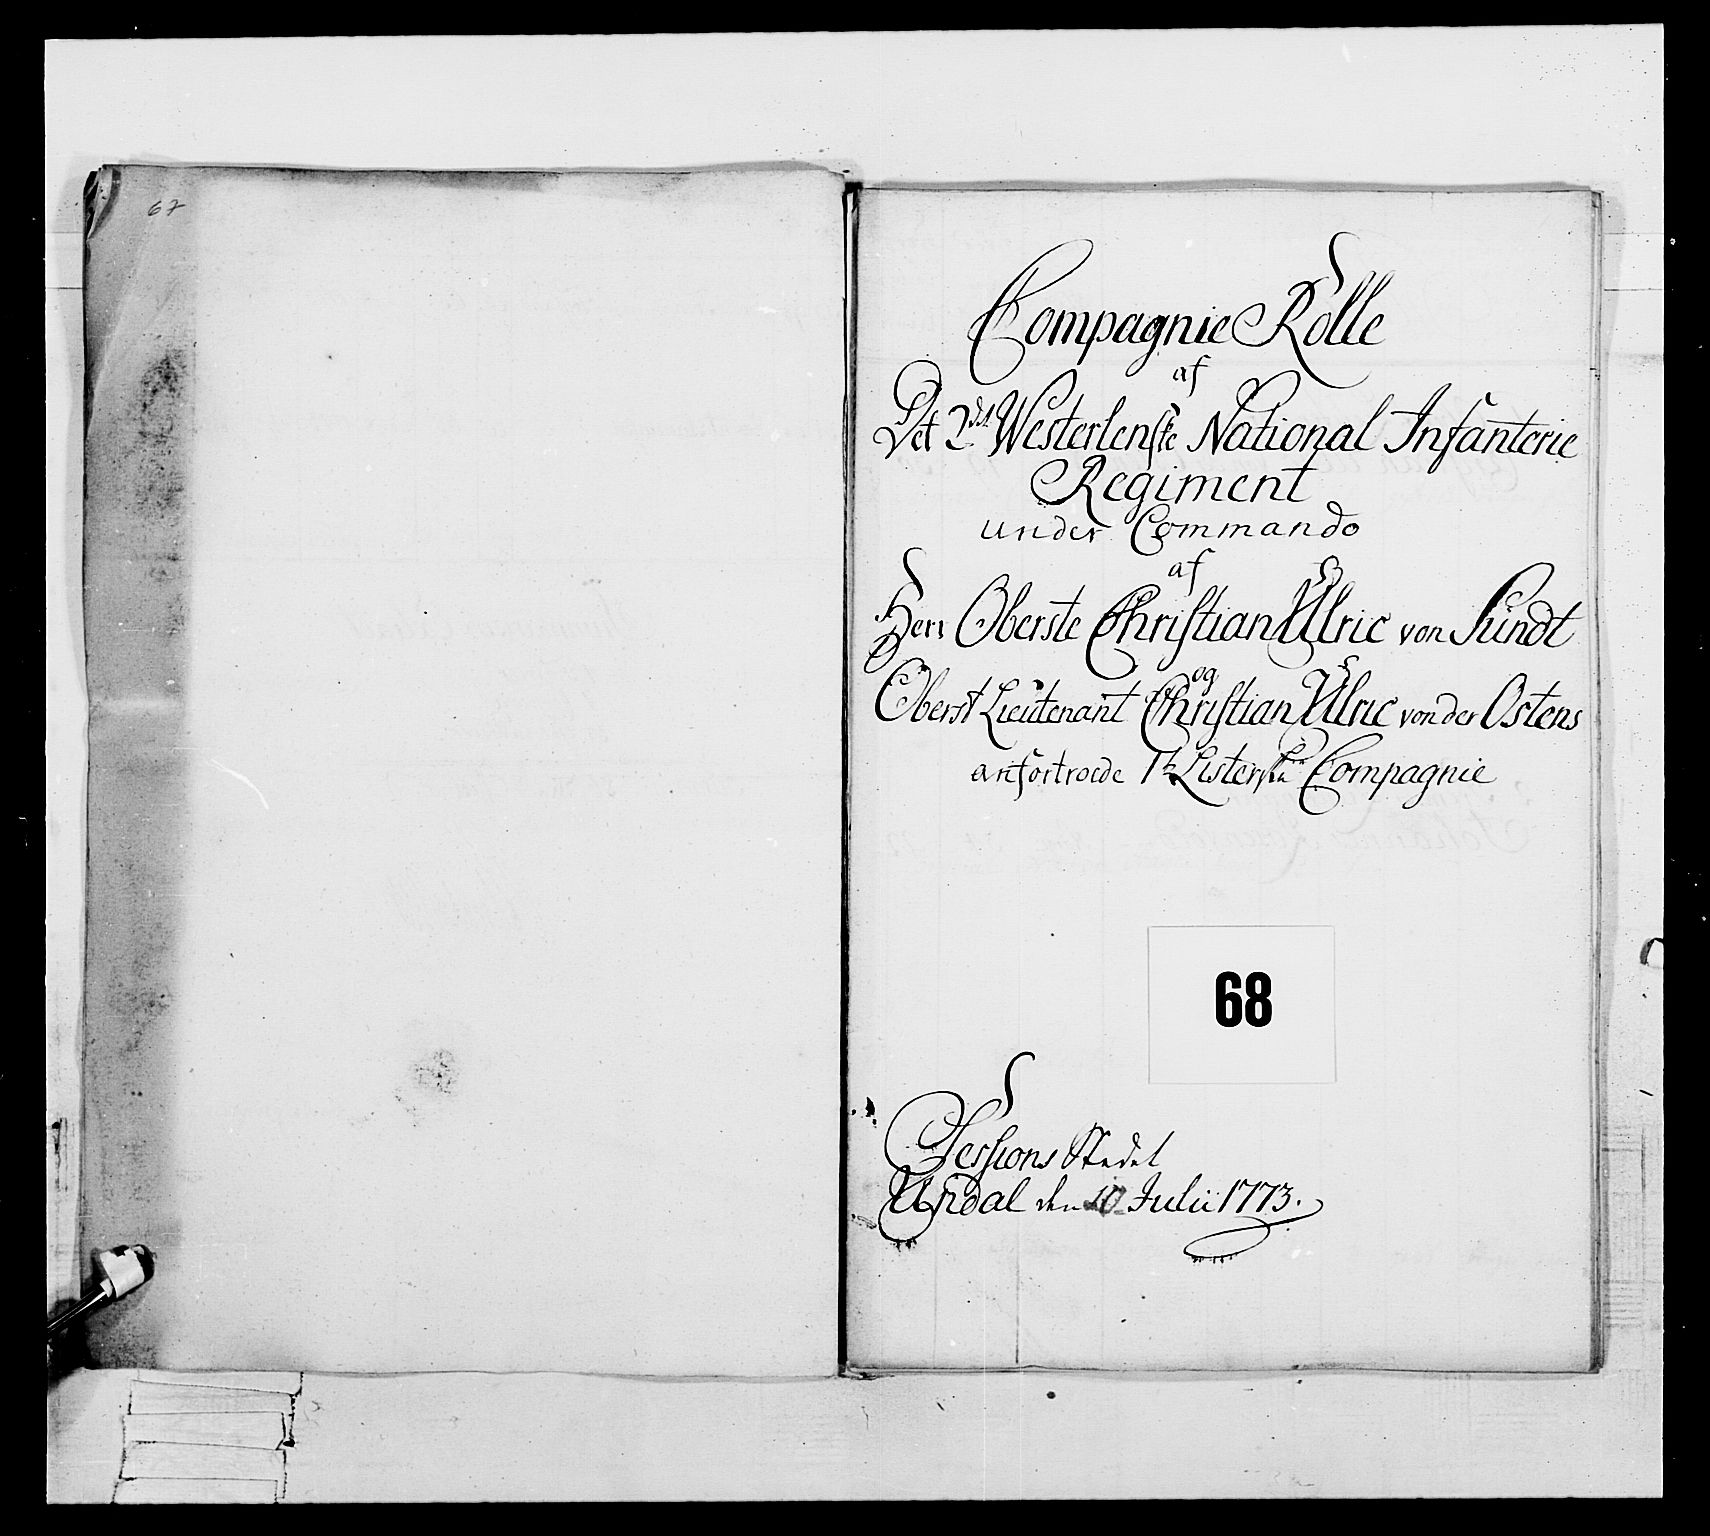 67
Compagnie Rolle
af
Det 2det Westerlenske National Infanterie
Regiment
under Commando
af
Herr Oberste Christian Ulric von Sundt
og
Oberst Lieutenant Christian Ulric von der Ostens
anfortroede 1te Listerske Compagnie
68
Sessions Stedet
Undal den 10 Julii 1773.